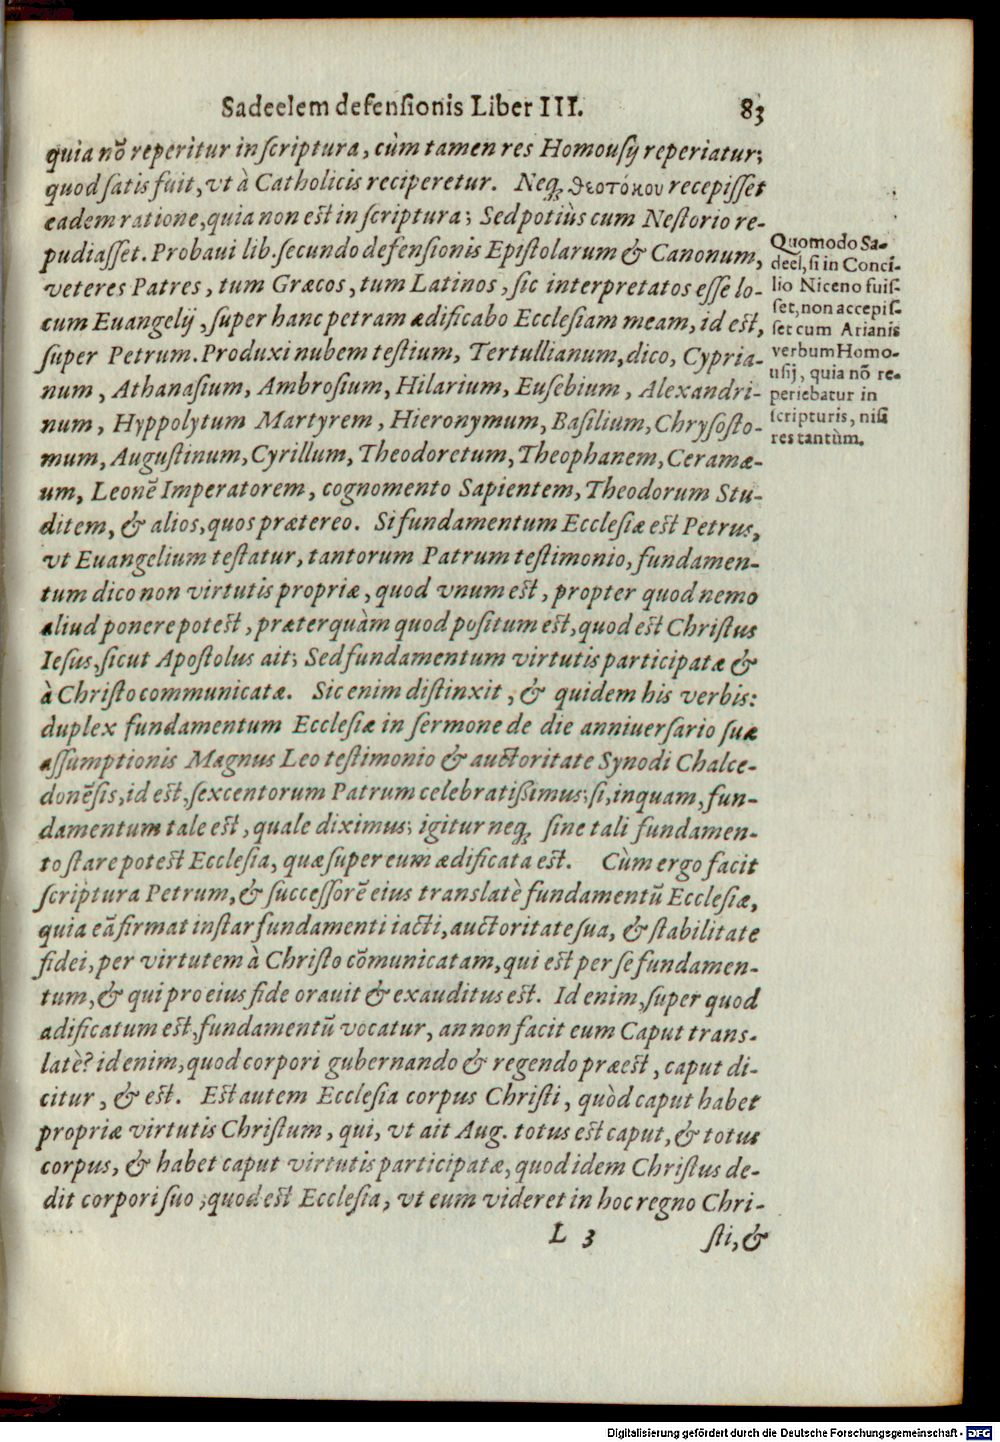 Sadeelem defensionis Liber III. 83
quia nõ reperitur in scriptura, cùm tamen res Homousij reperiatur;
quod satis fuit, vt à Catholicis reciperetur. Neq; θεοτόκου recepisset
eadem ratione, quia non est in scriptura; Sed potiùs cum Nestorio re-
pudiasset. Probaui lib. secundo defensionis Epistolarum & Canonum,
veteres Patres, tum Græcos, tum Latinos, sic interpretatos esse lo-
cum Euangelij, super hanc petram ædificabo Ecclesiam meam, id est,
super Petrum. Produxi nubem testium, Tertullianum, dico, Cypria-
num, Athanasium, Ambrosium, Hilarium, Eusebium, Alexandri-
num, Hyppolytum Martyrem, Hieronymum, Basilium, Chrysosto-
mum, Augustinum, Cyrillum, Theodoretum, Theophanem, Ceramæ-
um, Leonẽ Imperatorem, cognomento Sapientem, Theodorum Stu-
ditem, & alios, quos prætereo. Si fundamentum Ecclesiæ est Petrus,
vt Euangelium testatur, tantorum Patrum testimonio, fundamen-
tum dico non virtutis propriæ, quod vnum est, propter quod nemo
aliud ponere potest, præterquàm quod positum est, quod est Christus
Iesus, sicut Apostolus ait; Sed fundamentum virtutis participatæ &
à Christo communicatæ. Sic enim distinxit, & quidem his verbis:
duplex fundamentum Ecclesiæ in sermone de die anniuersario suæ
assumptionis Magnus Leo testimonio & auctoritate Synodi Chalce-
donẽsis, id est, sexcentorum Patrum celebratißimus; si, inquam, fun-
damentum tale est, quale diximus; igitur neq; sine tali fundamen-
to stare potest Ecclesia, quæ super eum ædificata est. Cùm ergo facit
scriptura Petrum, & successorẽ eius translatè fundamentũ Ecclesiæ,
quia eã firmat instar fundamenti iacti, auctoritate sua, & stabilitate
fidei, per virtutem à Christo cõmunicatam, qui est per se fundamen-
tum, & qui pro eius fide orauit & exauditus est. Id enim, super quod
ædificatum est, fundamentũ vocatur, an non facit eum Caput trans-
latè? id enim, quod corpori gubernando & regendo præest, caput di-
citur, & est. Est autem Ecclesia corpus Christi, quòd caput habet
propriæ virtutis Christum, qui, vt ait Aug. totus est caput, & totus
corpus, & habet caput virtutis participatæ, quod idem Christus de-
dit corpori suo, quod est Ecclesia, vt eum videret in hoc regno Chri-
L 3 sti, &
Quomodo Sa-
deel, si in Conci-
lio Niceno fuis-
set, non accepis-
set cum Arianis
verbum Homo-
usij, quia nõ re-
periebatur in
scripturis, nisi
res tantùm.
Digitalisierung gefördert durch die Deutsche Forschungsgemeinschaft - DFG